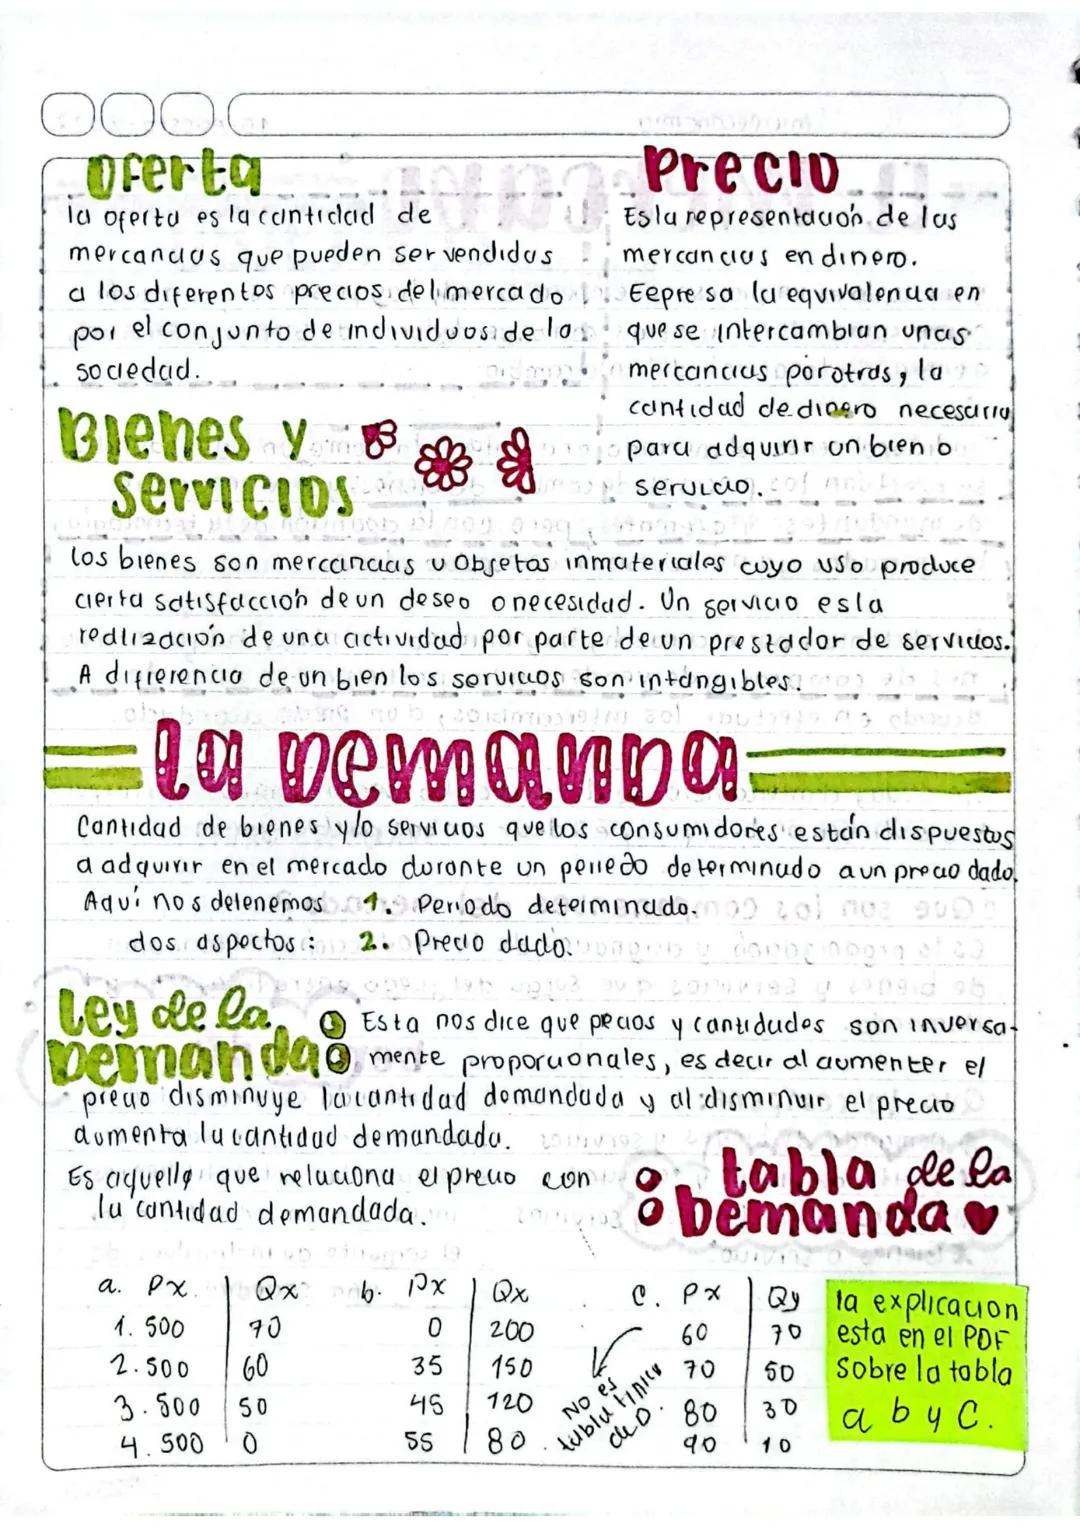 Oferta
la oferta es la cantidad de
mercancias que pueden ser vendidas
a los diferentes precios del mercado
por el conjunto de individuos de la
sociedad.
Precio
Es la representación de las
mercancias en dinero.
Eepresa la equivalencia en
que se intercambian unas
mercancias por otras, la
cantidad de dinero necesaria
para adquirir un bien o
servicio.
Bienes y
servicios
los bienes son mercancias u Objetos inmateriales cuyo uso produce
cierta satisfacción de un deseo o necesidad. Un servicio es la
realización de una actividad por parte de un prestador de servicios.
A difierencia de un bien los servicios son intangibles.
la Demanda
Cantidad de bienes y/o servicios que los consumidores están dispuestos
a adquirir en el mercado durante un periedo determinado a un precio dado.
Aquí nos detenemos
dos aspectos:
1. Periodo determinado.
2. Precio dado.
Ley de la
Demanda
Esta nos dice que pecios y cantidades son inversa-
mente proporcionales, es decir al aumenter el
precio disminuye la cantidad demandada y al disminuir el precio
aumenta la cantidad demandada.
Es aquella que relaciona el precio con
la cantidad demandada.
tabla de la
Demanda
a. Px Qx
1. 500 70
2. 500 60
3. 500 50
4. 500 0
b. Px Qx
0 200
35 150
45 120
55 80
c. Px Qy
60 70
70 50
80 30
90 10
No es
tabla tipica
de D.
la explicacion
esta en el PDF
sobre la tabla
a b y C.